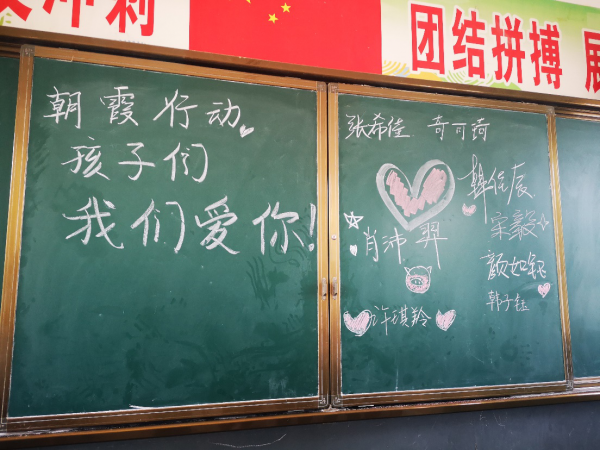 冲刺
团结拼搏
展
朝霞行动
孩子们
我们爱你!
张希佳 奇可琦
韩佳辰
宋毅
肖沛羿
颜如钰
韩子钰
许琪羚